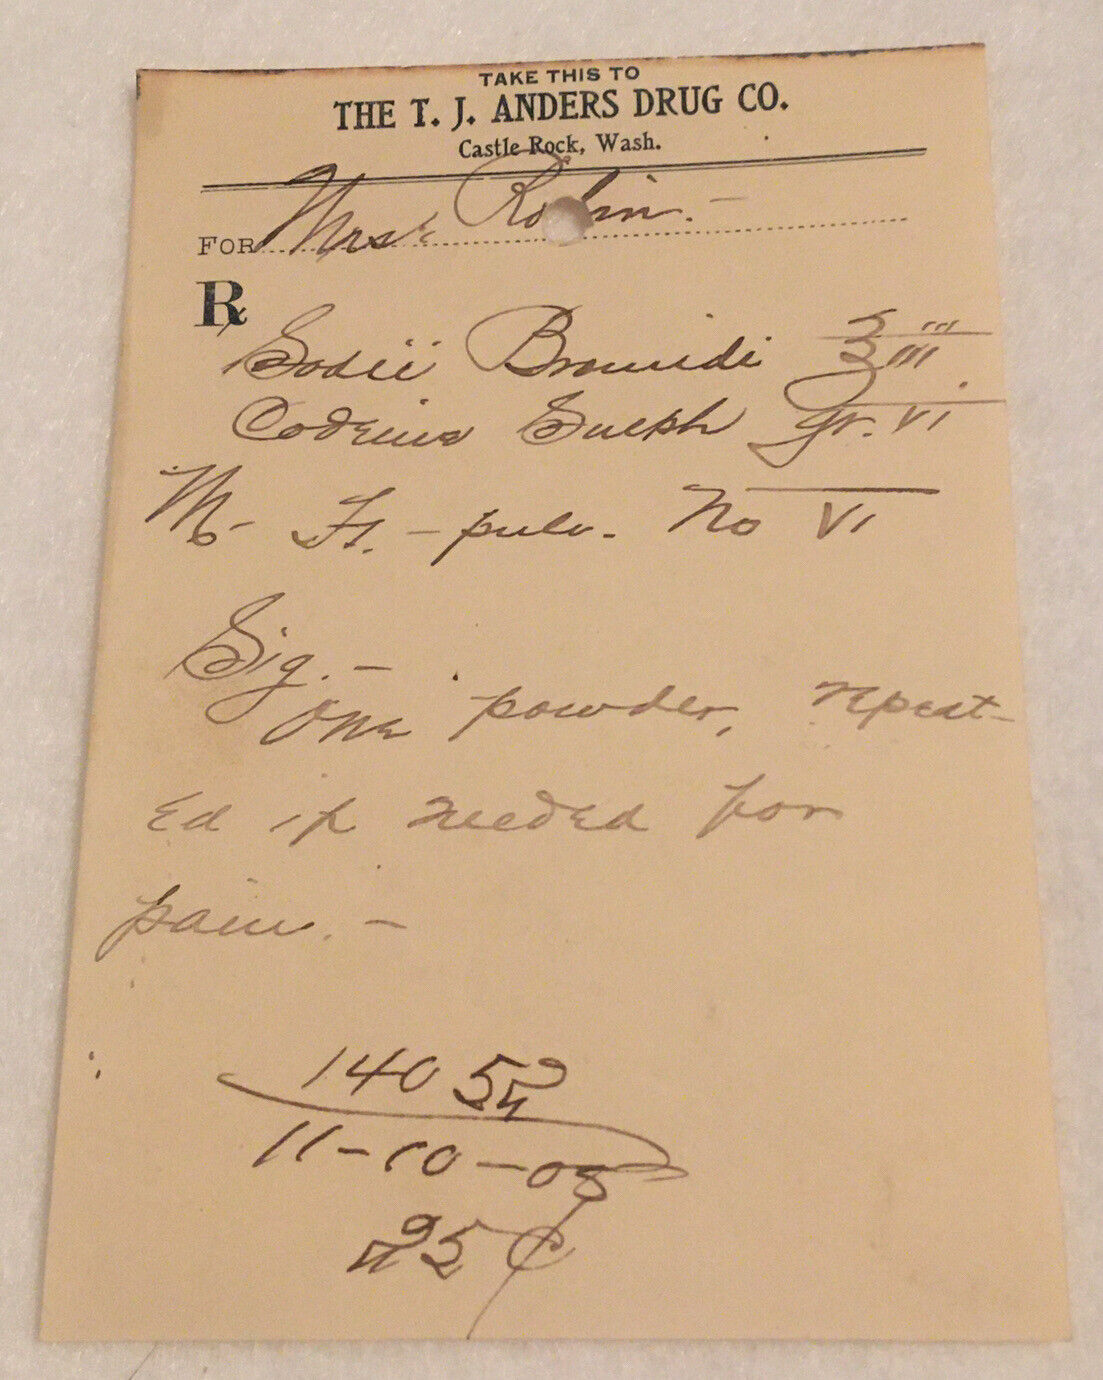 TAKE THIS TO
THE T. J. ANDERS DRUG CO.
Castle Rock, Wash.
FOR Mrs. Robin. -
℞
Sodii Bromidi ʒ iii
Codeina Sulph gr. vi
M- Ft. - pulv. No VI
Sig. -
One powder, repeat-
ed if needed for
pain. -
140 52
11-10-08
25 ¢